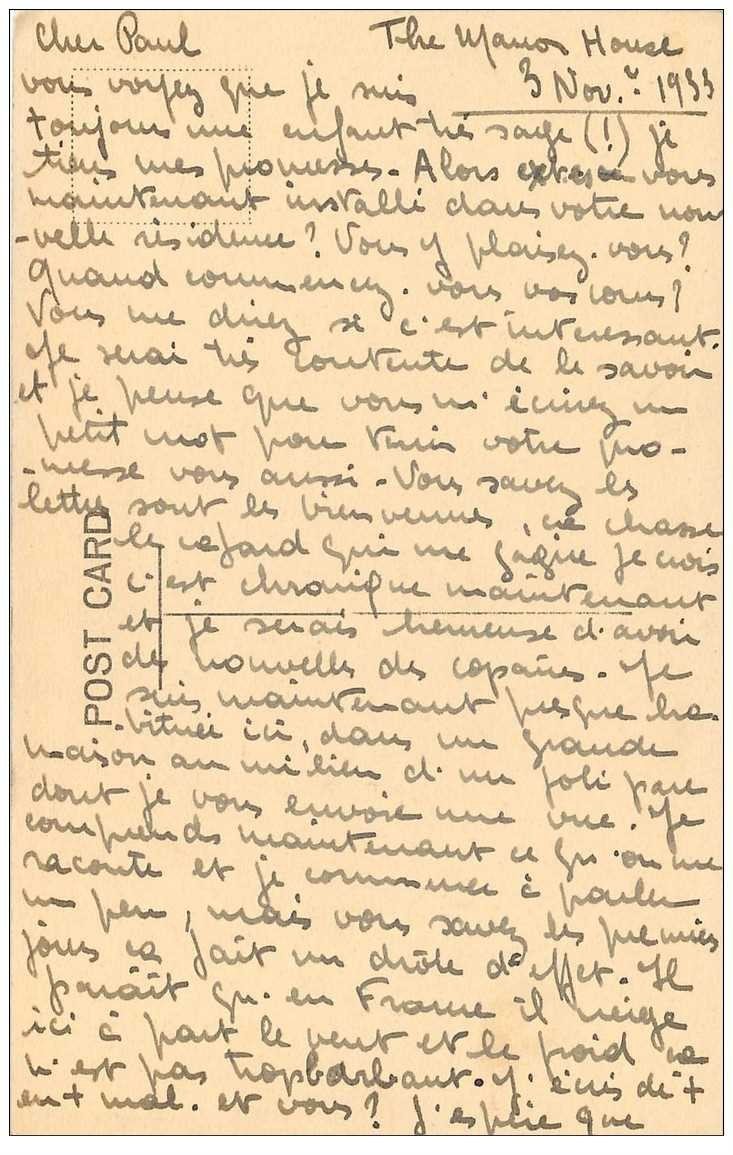 Cher Paul The Manor House
3 Nov. 1933
vous voyez que je suis
toujours une enfant très sage (!) je
tiens mes promesses. Alors êtes vous
maintenant installé dans votre nou
-velle résidence? Vous y plaisez-vous?
Quand commencez-vous vos cours?
Vous me direz si c'est interessant.
Je serai très contente de le savoir
et je pense que vous m'écrirez un
petit mot pour tenir votre pro-
-messe vous aussi - Vous savez les
lettres sont les bienvenues, ça chasse
le cafard qui me gagne je crois
c'est chronique maintenant
et je serais heureuse d'avoir
des nouvelles des copains. Je
suis maintenant presque ha-
-bituée ici, dans une grande
maison au milieu d'un joli parc
dont je vous envoie une vue. Je
comprends maintenant ce qu'on me
raconte et je commence à parler
un peu, mais vous savez les premiers
jours ça fait un drôle d'effet. Il
paraît qu'en France il neige
ici à part le vent et le froid ça
n'est pas trop barbant. J'écris de +
en + mal. et vous? J'espère que
POST CARD